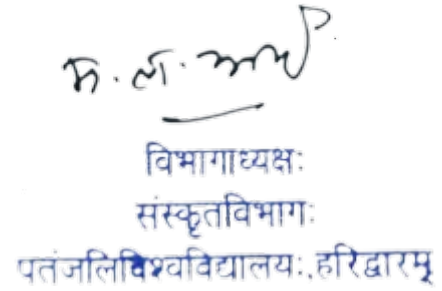 विभागाध्यक्षः
संस्कृतविभागः
पतंजलिविश्वविद्यालयः,हरिद्वारम्